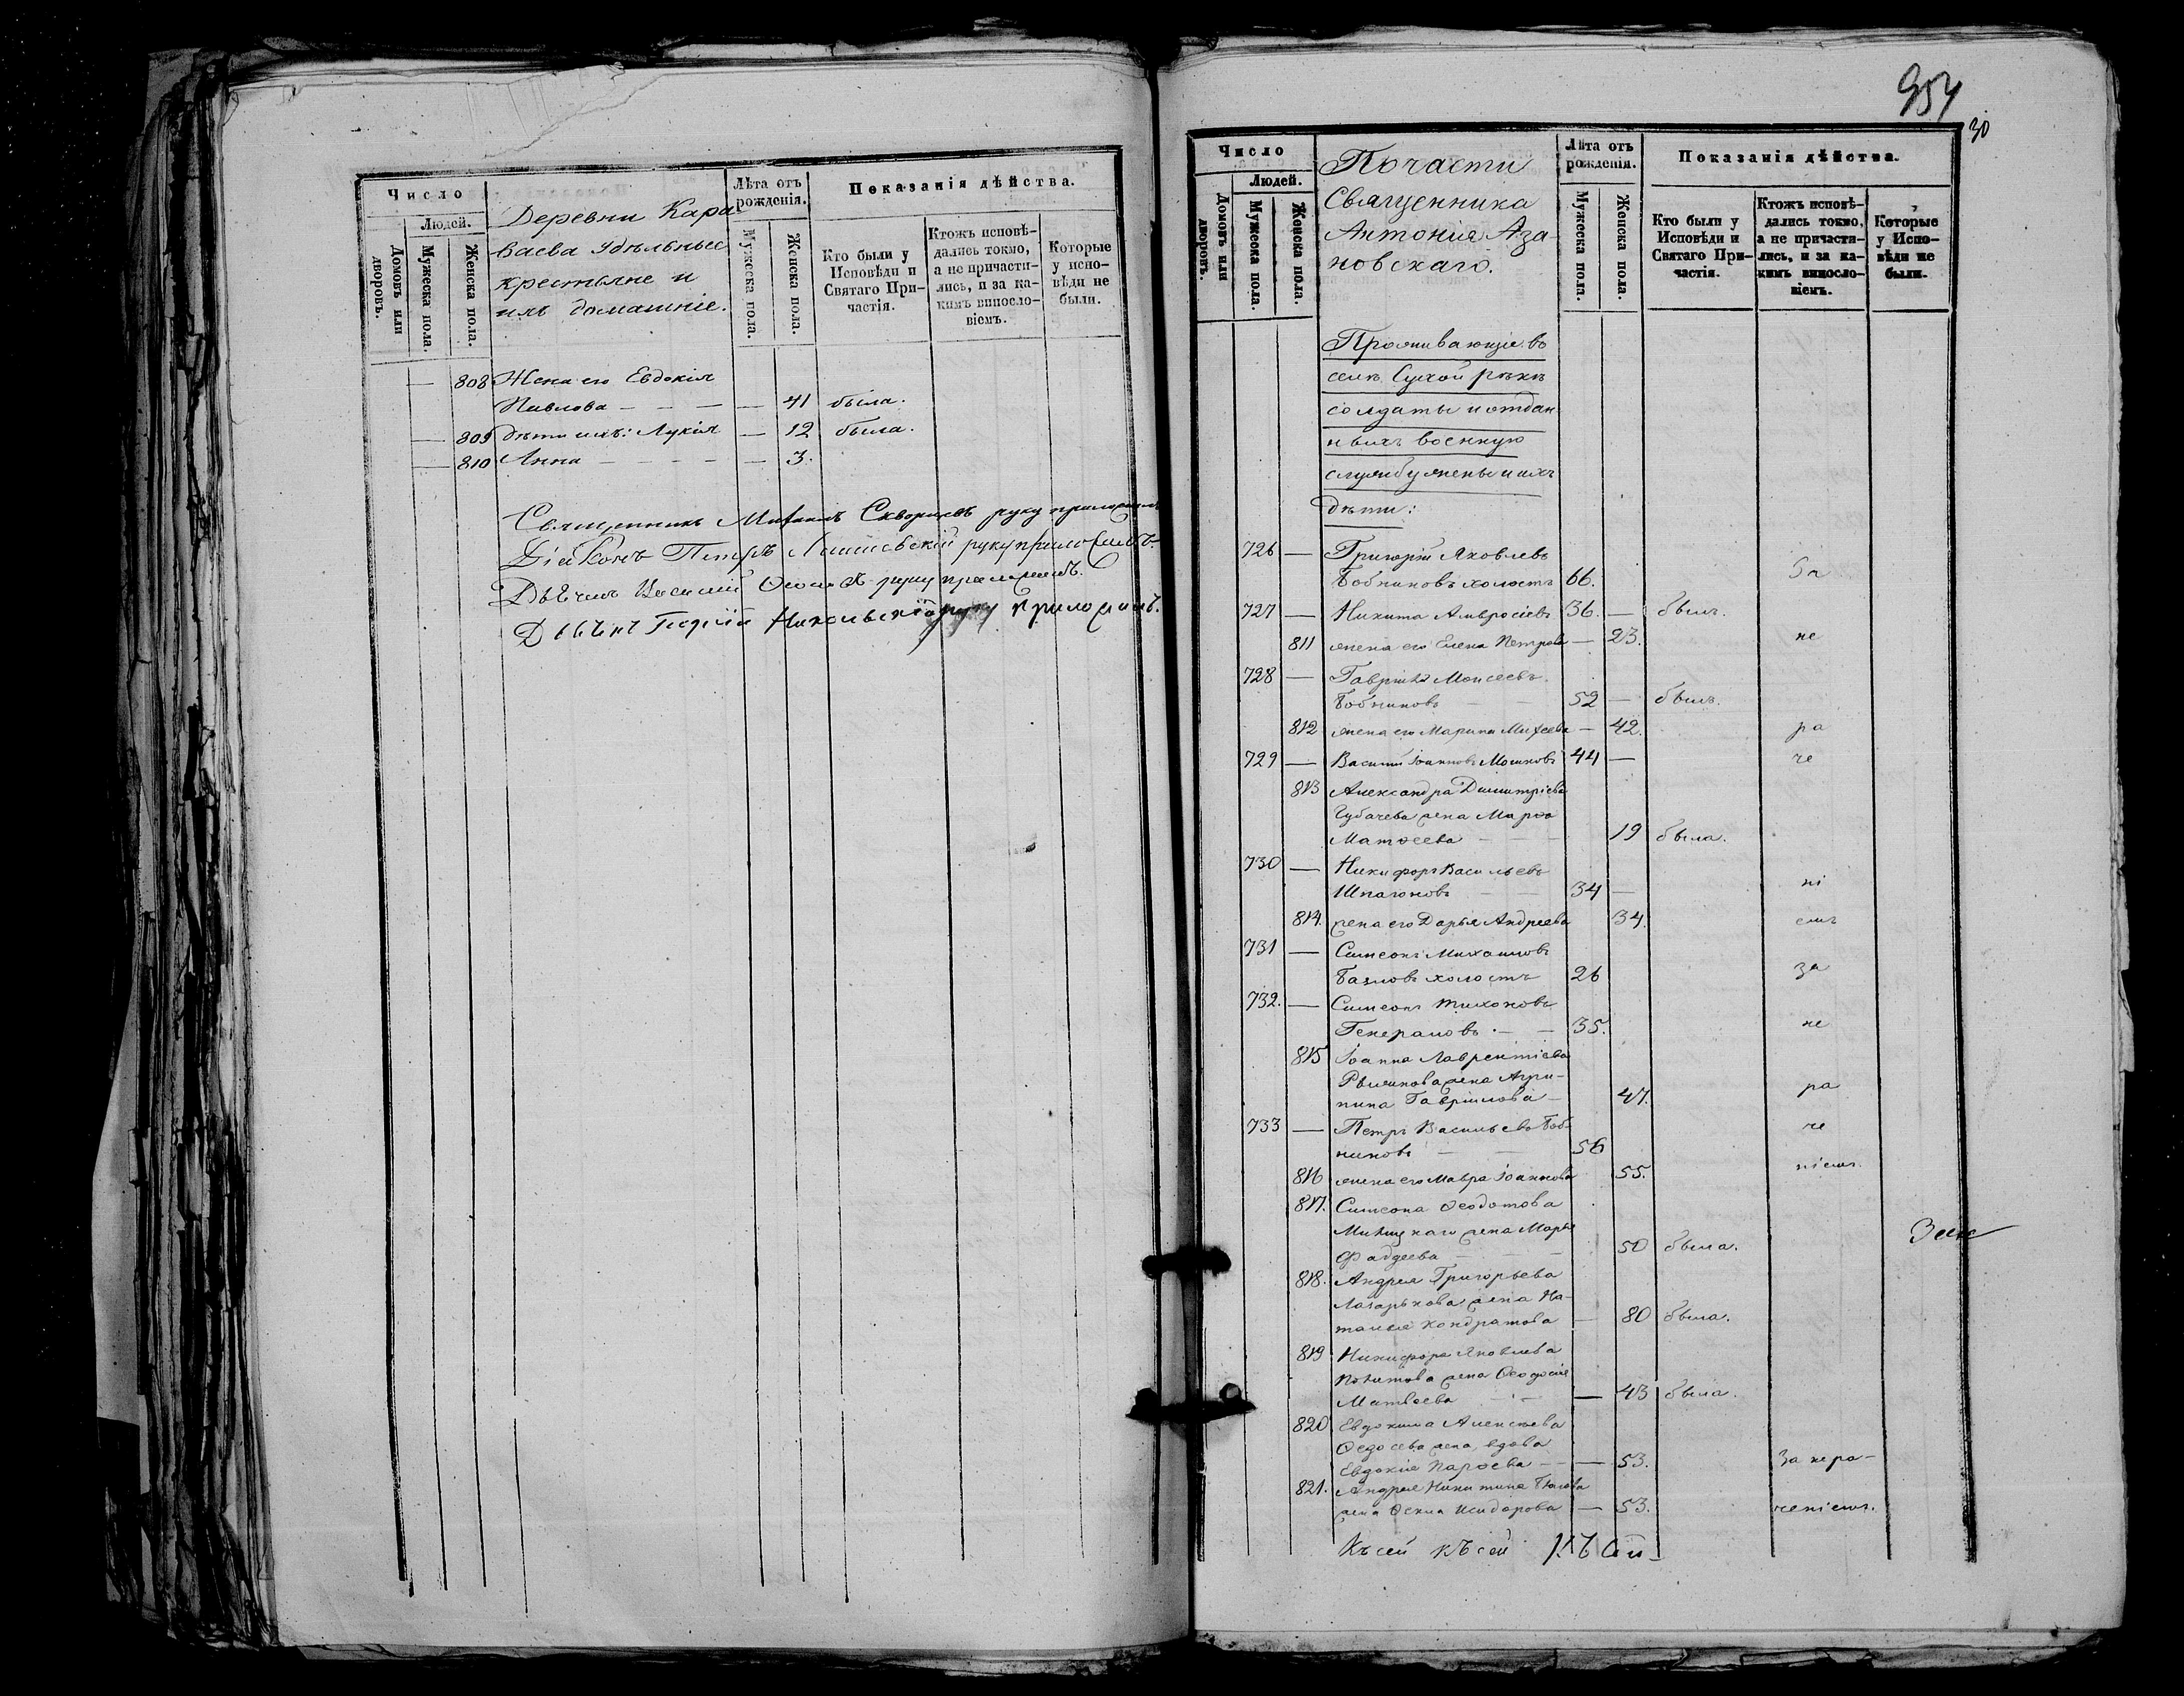 Число
Людей.
Домовъ или дворовъ.
Мужеска пола.
Женска пола.
Деревни Кара-
ваева Удѣльные
крестьяне и
ихъ домашніе.
Лѣта отъ рожденія.
Мужеска пола.
Женска пола.
Показанія дѣйства.
Кто были у Исповѣди и Святаго Причастія.
Ктожъ исповѣдались токмо, а не причастились, и за какимъ винословіемъ.
Которые у исповѣди не были.
— 808 Жена его Евдокія
Павлова — — — — 41 была.
— 809 дѣти ихъ: Лукія — 12 была.
— 810 Анна — — — — — 3.
Священникъ Михаилъ Скворцевъ руку приложилъ
Діаконъ Петръ руку приложилъ.
Дьячекъ Василій руку приложилъ.
Георгій Никольскій руку приложилъ.
954
30
Число
Людей.
Домовъ или дворовъ.
Мужеска пола.
Женска пола.
По части
Священника
Антонія Аза-
новскаго.
Лѣта отъ рожденія.
Мужеска пола.
Женска пола.
Показанія дѣйства.
Кто были у Исповѣди и Святаго Причастія.
Ктожъ исповѣдались токмо, а не причастились, и за какимъ винословіемъ.
Которые у Исповѣди не были.
Проживающіе въ
селѣ Сухой рѣкѣ
солдаты и отдан-
ныхъ военную
службу жены и ихъ
дѣти:
726 — Григорій Яковлевъ
Бобниковъ холостъ 66. За
727 — Никита Амвросіевъ 36. — былъ.
811 жена его Елена Петрова — 23. не
728 — Гавріилъ Моисеевъ
Бобниковъ — — 52 — былъ.
812 жена его Марина Михеева — 42. ра
729 — Василій Іоанновъ Мошковъ 44 — че
813 Александра Димитріева
Губачева жена Марѳа
Матѳеева — — 19 была.
730 — Никифоръ Васильевъ
Шпагоновъ — — 34 — ні
814. жена его Дарья Андреева 34. емъ
731 — Симеонъ Михаиловъ
холостъ 26 за
732. — Симеонъ Тихоновъ
Генераловъ. — — 35. не
815 Іоанна Лаврентіева
жена Агри-
пина Гавріилова — 47. ра
733 — Петръ Васильевъ Боб-
никовъ — — 56 че
816 жена его Мавра Іоаннова 55. ніемъ.
817. Симеона Ѳеодотова
жена Марья
Фаддеева — — — 50 была.
818. Андрея Григорьева
Лазарькова жена На-
талья Кондратова — 80 была.
819 Никифора Яковлева
жена Ѳеодосія
Матвѣева — — — 43 была.
820 Евдокима Алексѣева
Ѳедосѣева жена, вдова
Евдокія Карпѣева — — 53. За нера-
821. Андрея Никитина
жена Исидорова — 53. ченіемъ.
Къ сей къ сей Къ сей